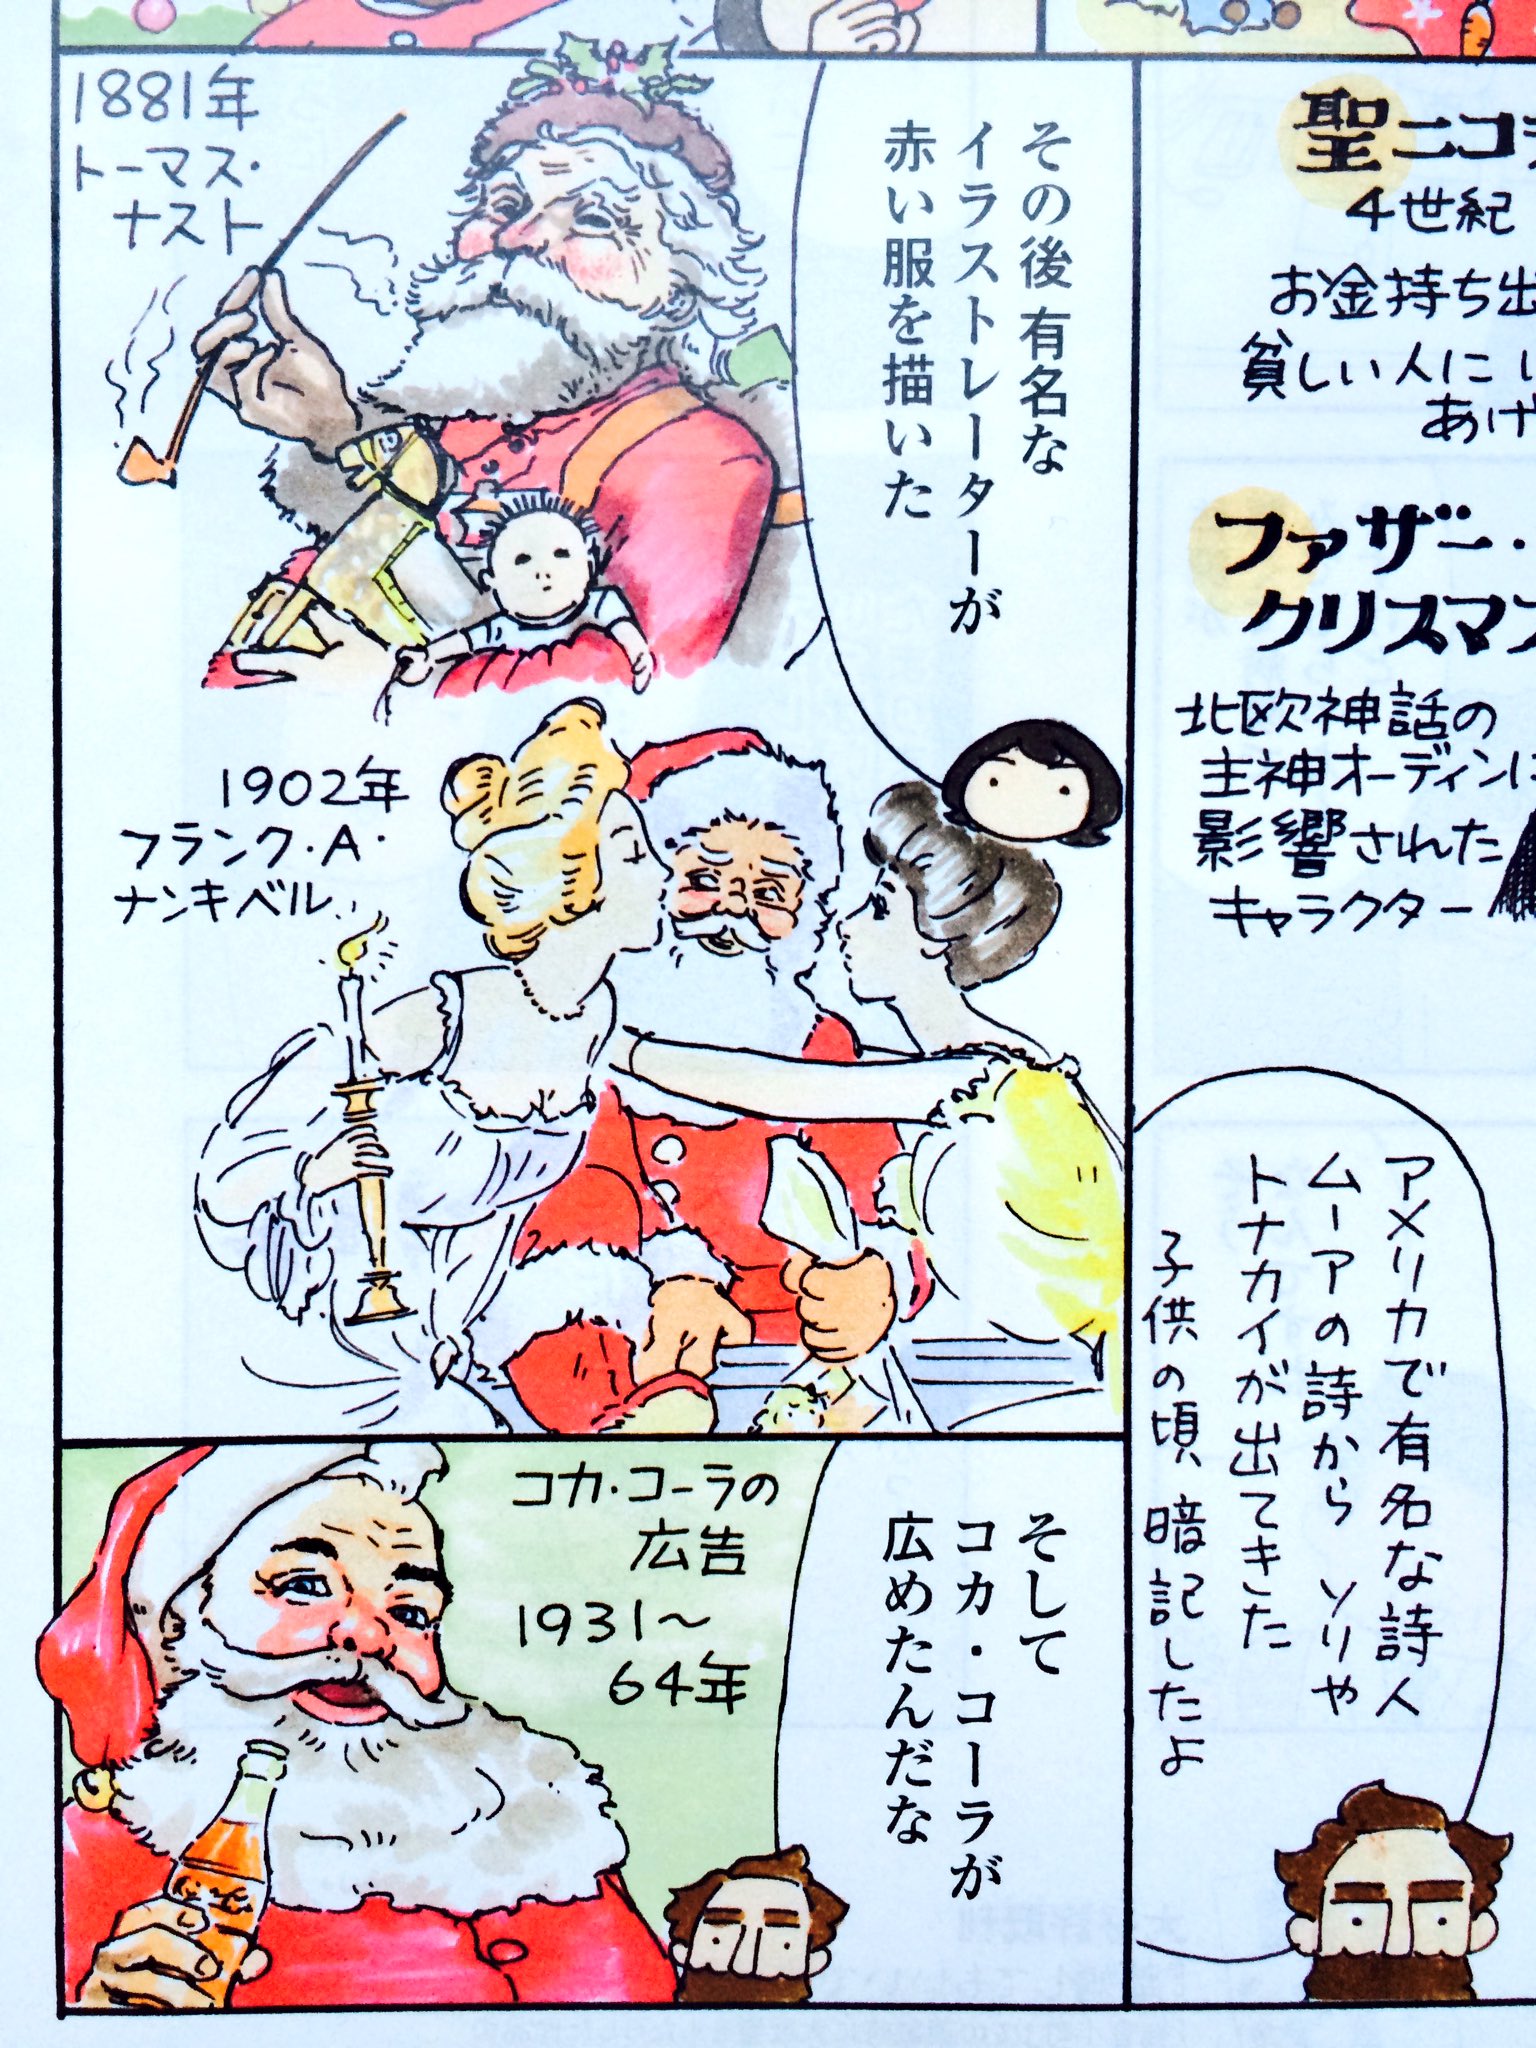 聖ニコラ
4世紀
お金持ち出
貧しい人に
あげ
ファザー・
クリスマス
北欧神話の
主神オーディンに
影響された
キャラクター
アメリカで有名な詩人
ムーアの詩から ソリや
トナカイが出てきた
子供の頃 暗記したよ
その後 有名な
イラストレーターが
赤い服を描いた
1881年
トーマス・
ナスト
1902年
フランク・A・
ナンキベル
そして
コカ・コーラが
広めたんだな
コカ・コーラの
広告
1931〜
64年